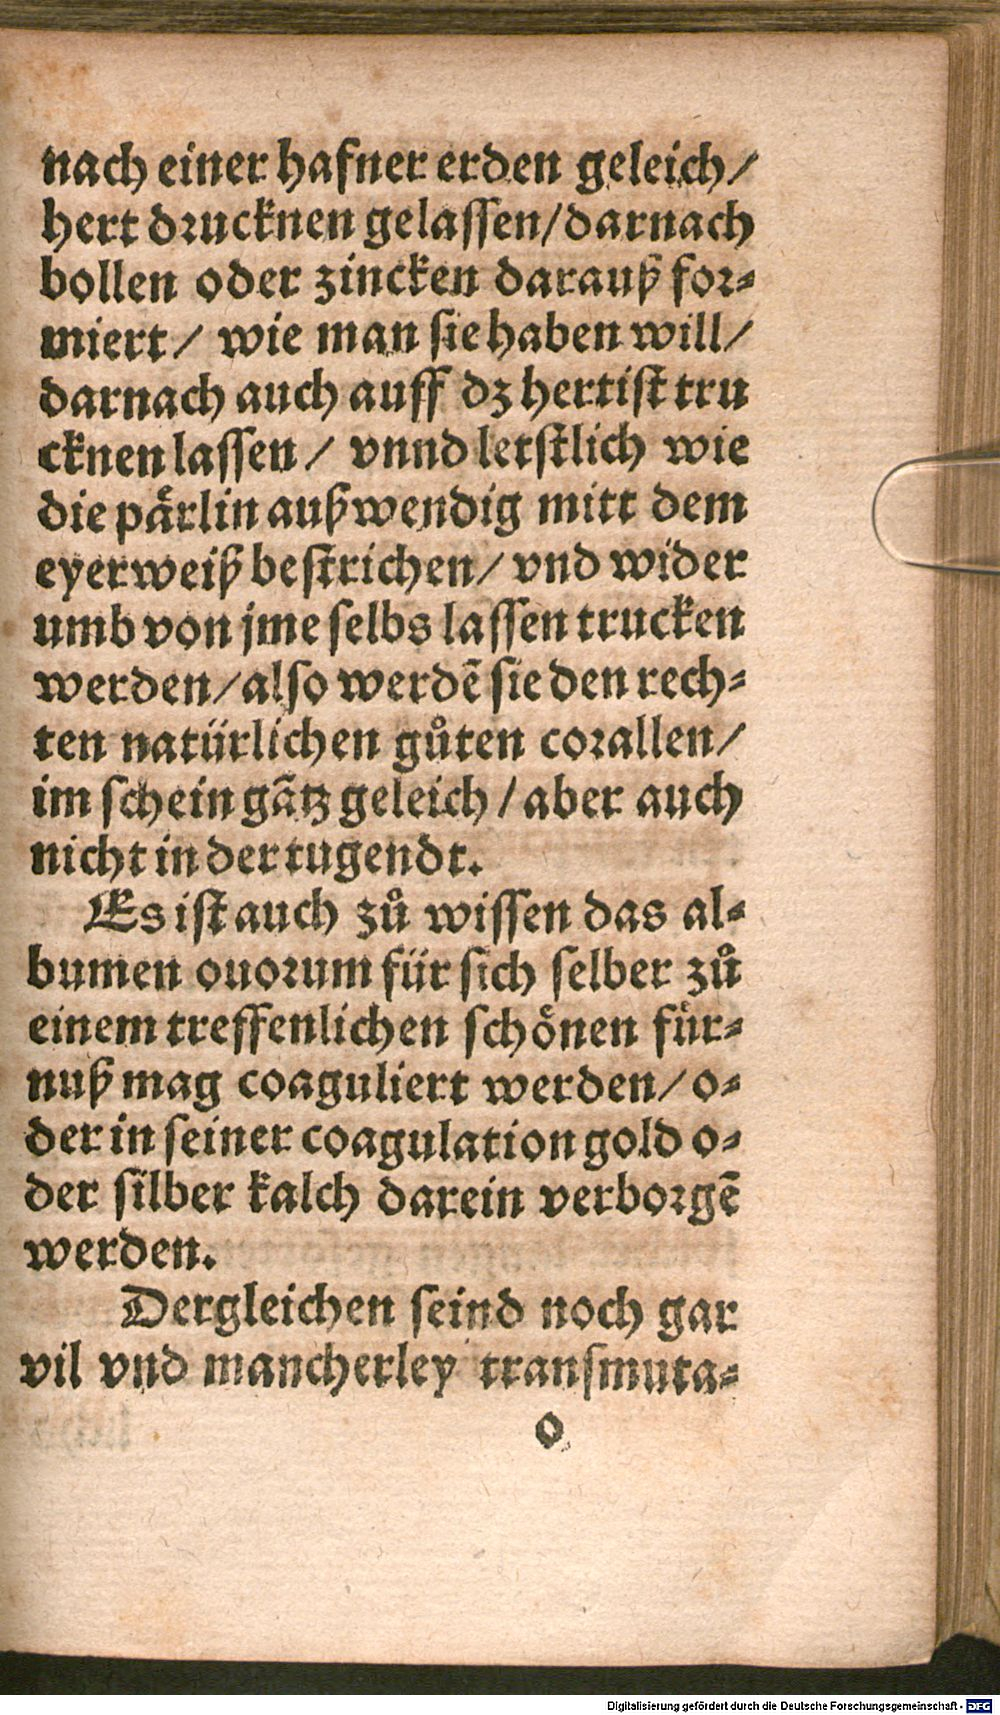 nach einer hafner erden geleich/
hert drucknen gelassen/darnach
bollen oder zincken darauß for-
miert/ wie man sie haben will/
darnach auch auff dz hertist tru
cknen lassen/ vnnd letstlich wie
die pärlin außwendig mitt dem
eyerweiß bestrichen/ vnd wider
umb von jme selbs lassen trucken
werden/also werdẽ sie den rech-
ten natürlichen gůten corallen/
im schein gãtz geleich/aber auch
nicht in der tugendt.
Es ist auch zů wissen das al-
bumen ouorum für sich selber zů
einem treffenlichen schönen für-
nuß mag coaguliert werden/o-
der in seiner coagulation gold o-
der silber kalch darein verborgẽ
werden.
Dergleichen seind noch gar
vil vnd mancherley transmuta-
o
Digitalisierung gefördert durch die Deutsche Forschungsgemeinschaft - DFG